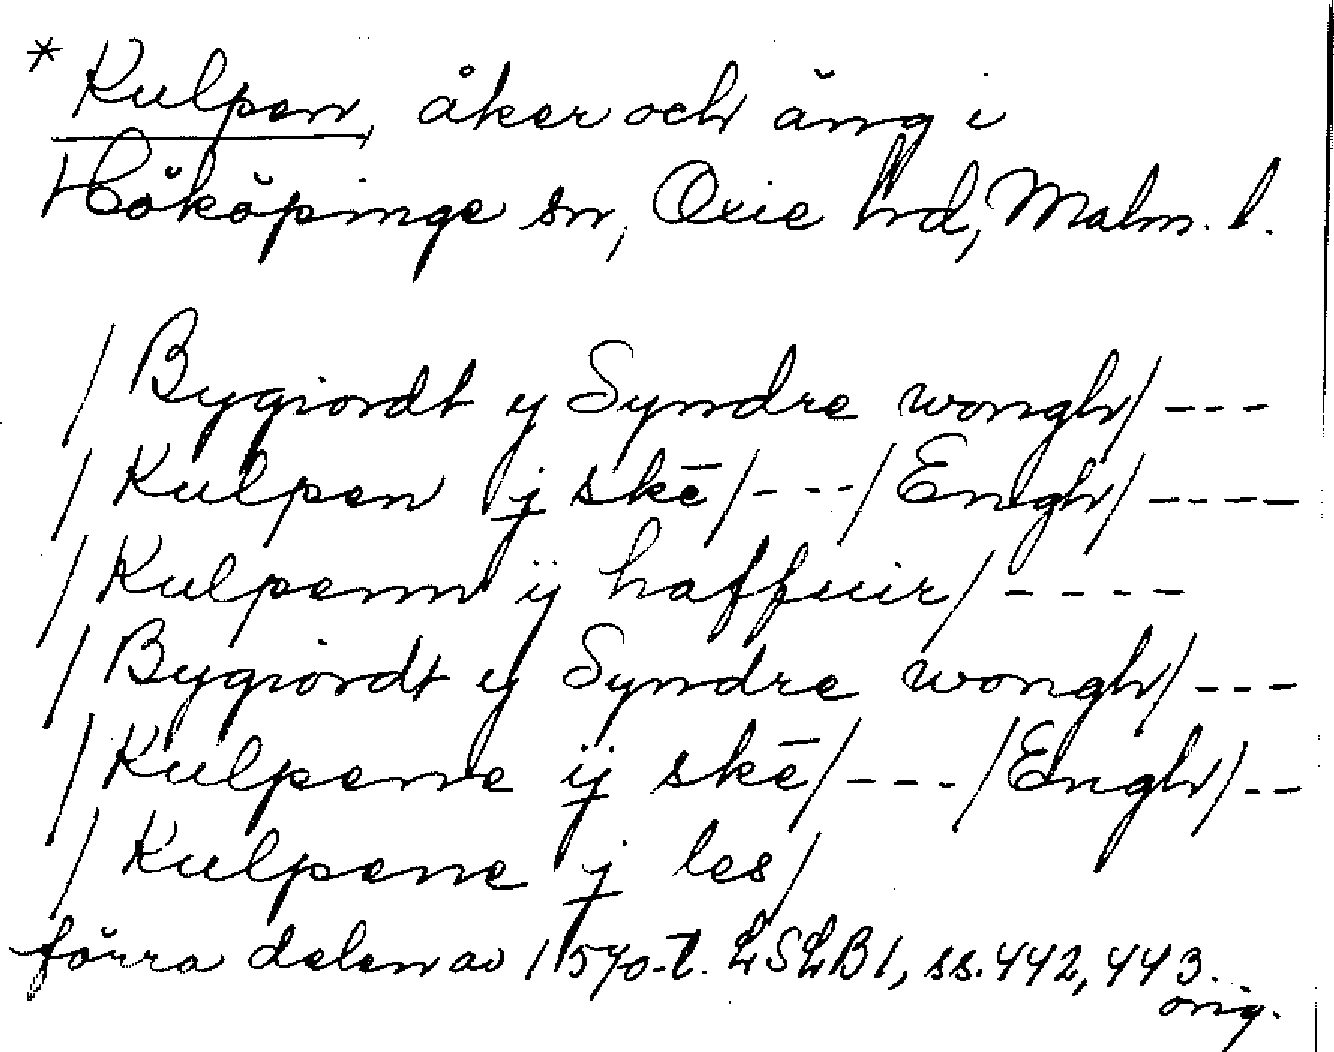 * Kulpen, åker och äng i
Hököpinge sn, Oxie hd, Malm. l.
/Bygiordt y Syndre wongh/ ---
/Kulpen j skē/---/Engh/----
/Kulpenn ij haffuir/----
/Bygiordt y Syndre wongh/---
/Kulpene ij skē/---/Engh/--
/Kulpene j les/
förra delen av 1570-t. LSLB1, ss. 442, 443.
orig.